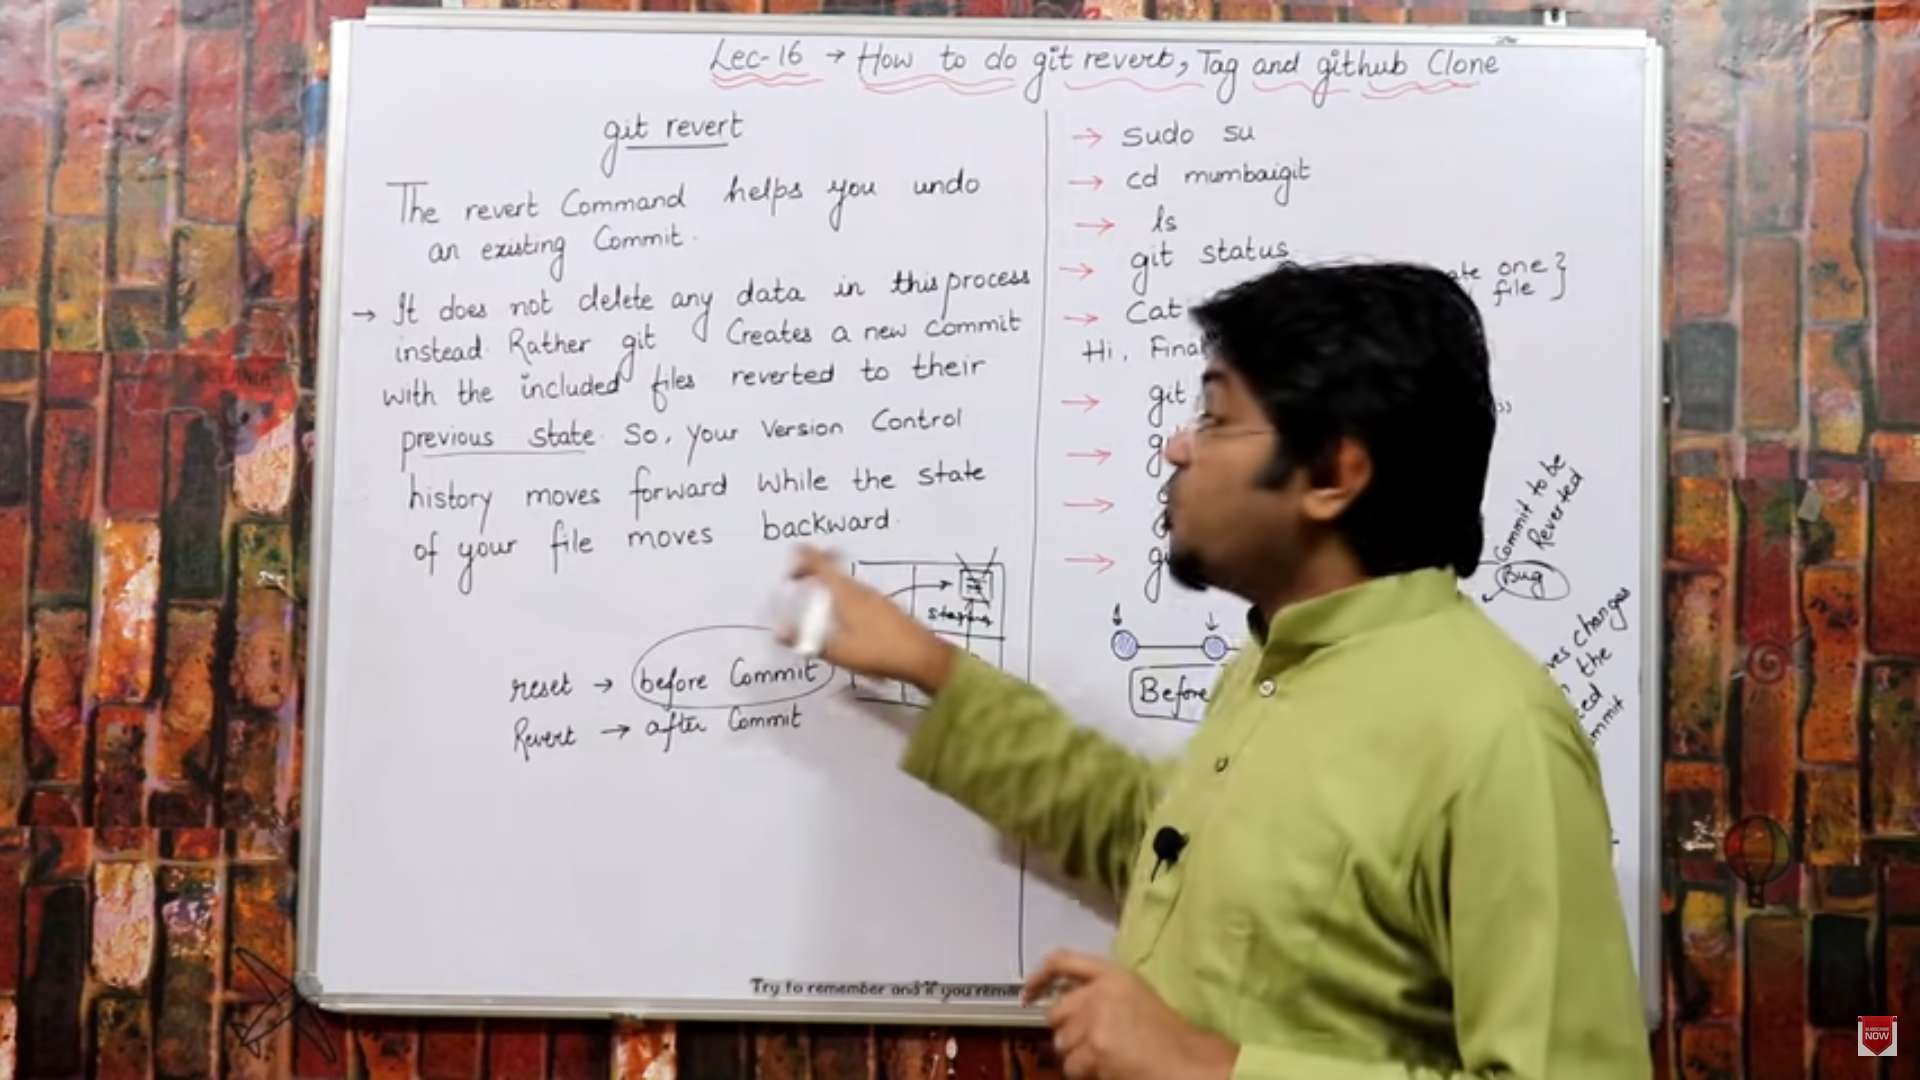 Lec-16 → How to do git revert, Tag and github Clone
git revert
The revert Command helps you undo
an existing Commit.
→ It does not delete any data in this process
instead. Rather git Creates a new commit
with the included files reverted to their
previous state. So, your version Control
history moves forward while the state
of your file moves backward.
staging
reset → before Commit
Revert → after Commit
→ sudo su
→ cd mumbaigit
→ ls
→ git status
→ Cat
one }
file }
Hi, Final
→ git
→
→
→
Commit to be
Reverted
Bug
changes
the
Before
Try to remember and if you
SUBSCRIBE
NOW